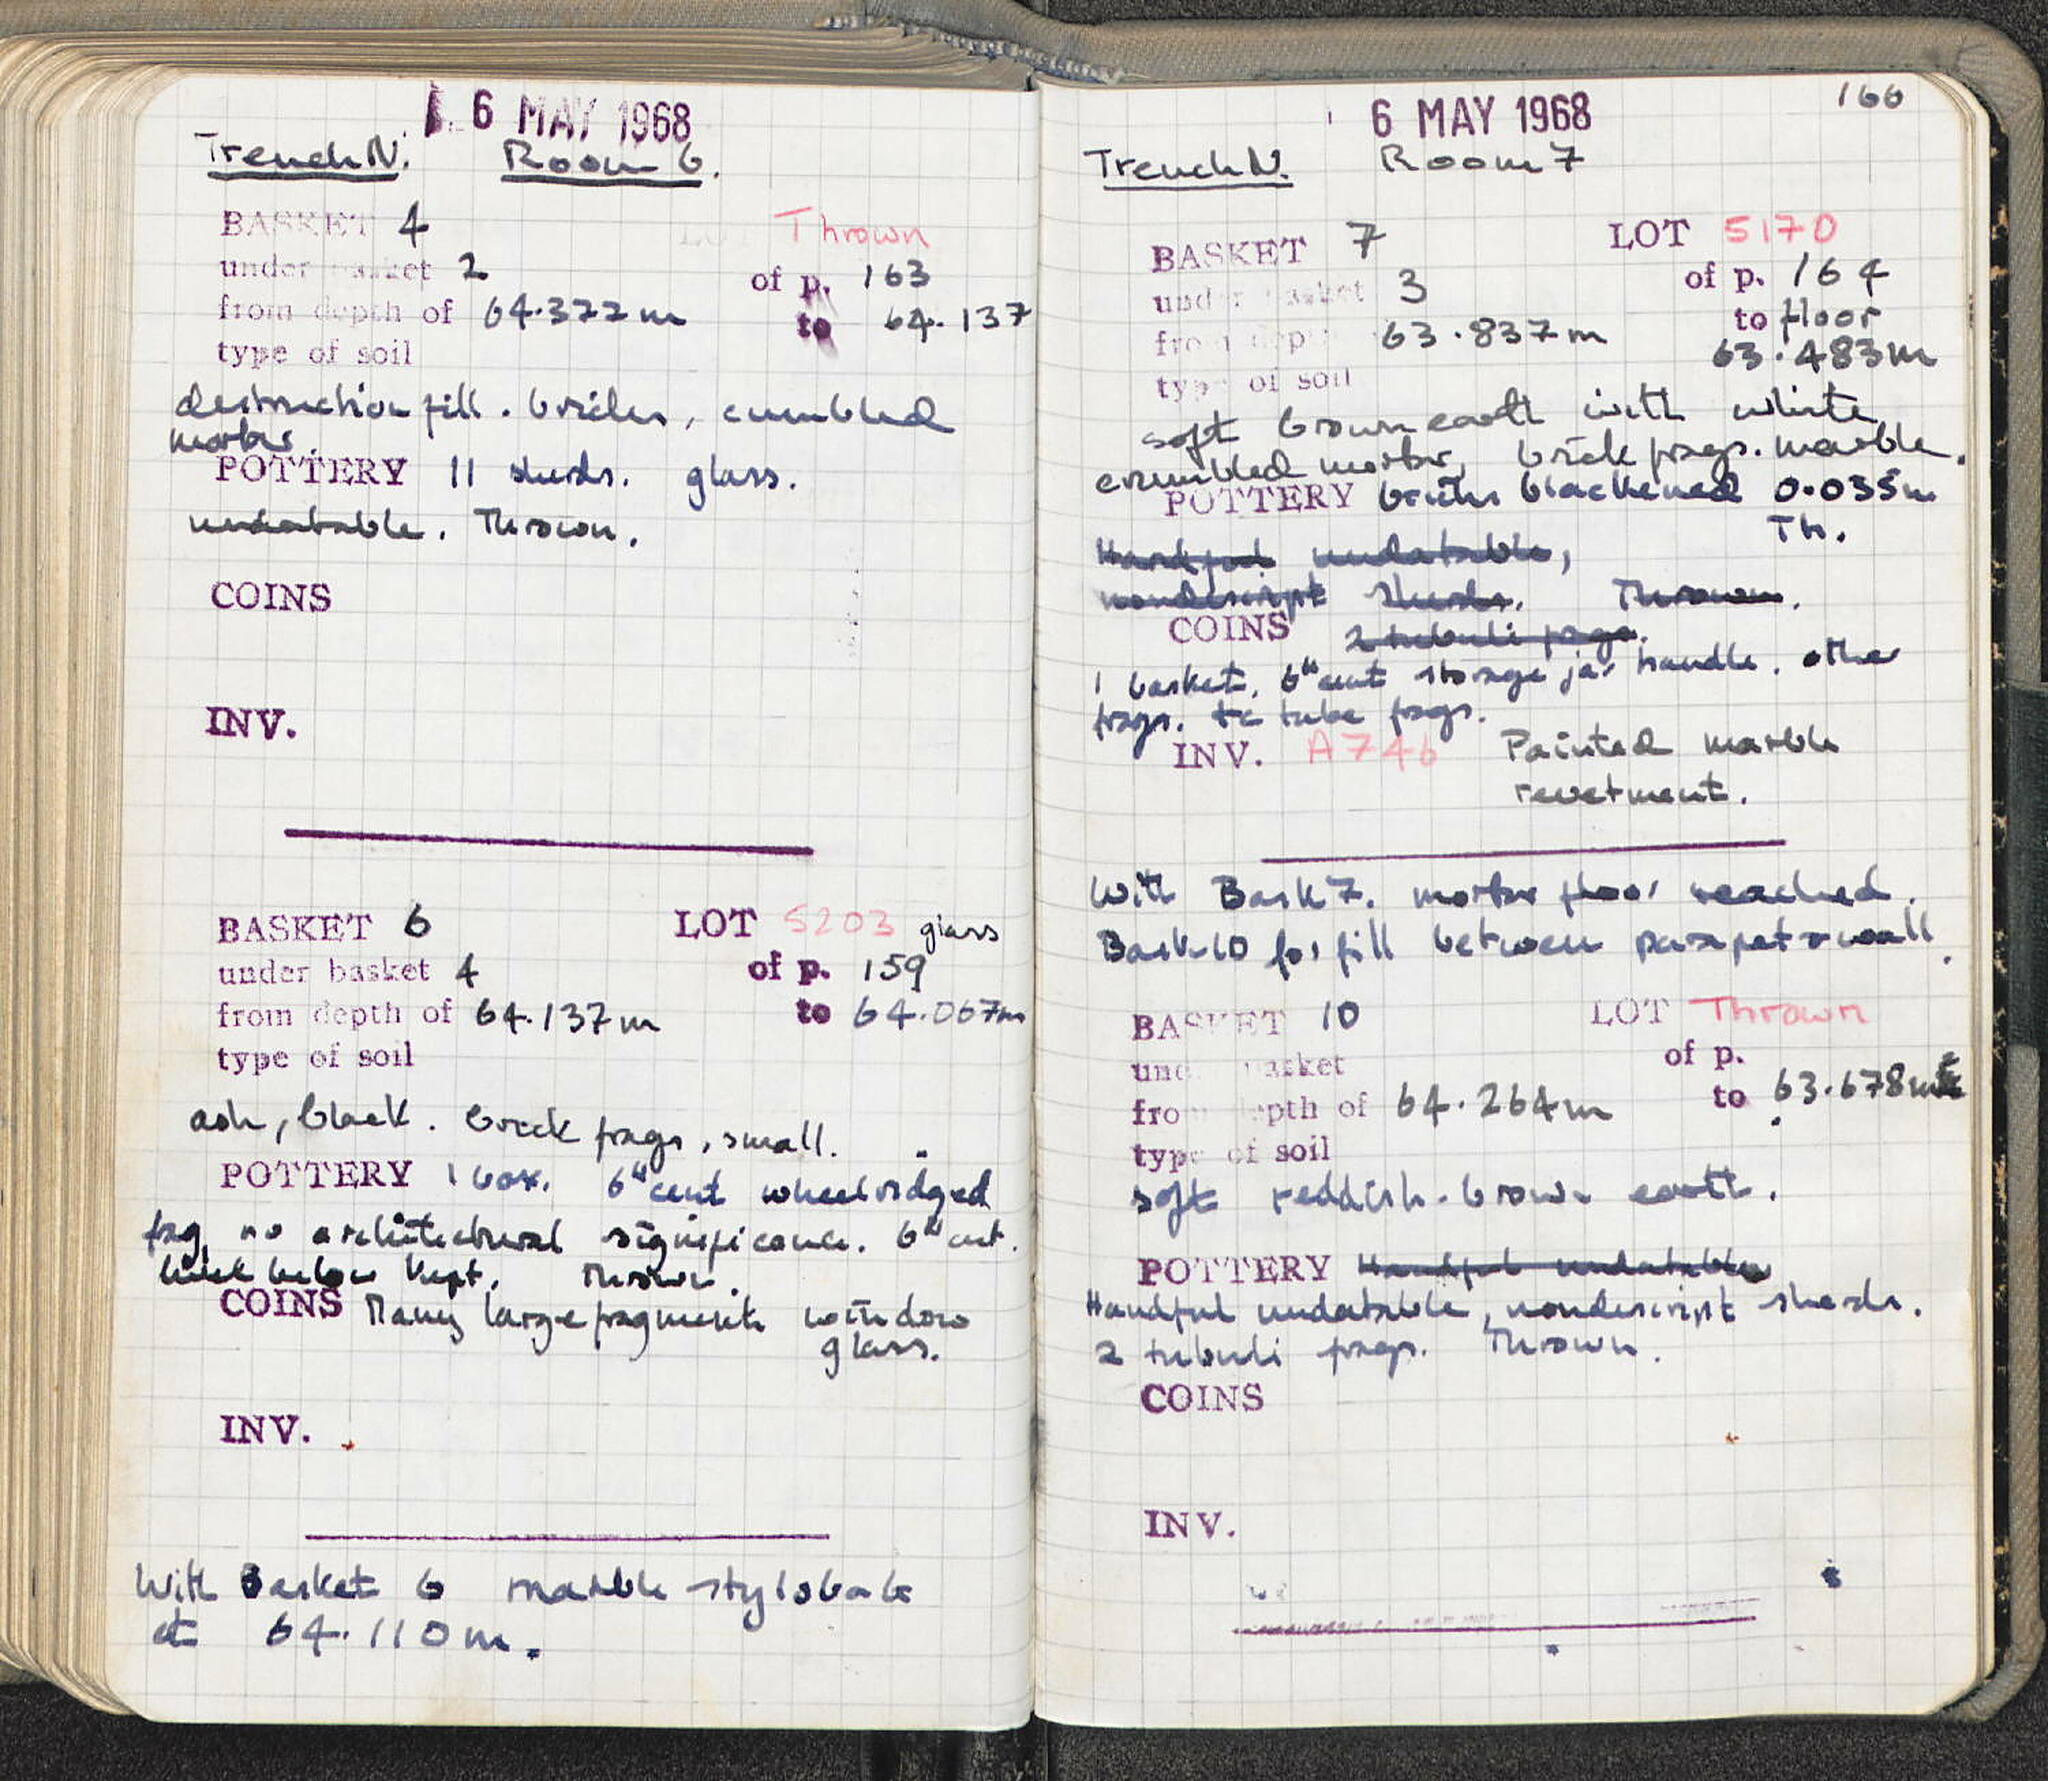 6 MAY 1968
Trench N. Room 6.
BASKET 4 LOT Thrown
under basket 2 of p. 163
from depth of 64.377m to 64.137
type of soil
destruction fill. bricks, crumbled
mortar.
POTTERY 11 sherds. glass.
undatable. Thrown.
COINS
INV.
BASKET 6 LOT 5203 glass
under basket 4 of p. 159
from depth of 64.137m to 64.067m
type of soil
ash, black. brick frags, small.
POTTERY 1 box. 6th cent wheelridged
frag, no architectural significance. 6th cent.
below kept. Thrown.
COINS Many large fragments window
glass.
INV.
With Basket 6 marble stylobate
at 64.110m.
166
6 MAY 1968
Trench N. Room 7
BASKET 7 LOT 5170
under basket 3 of p. 164
from depth 63.837m to floor
63.483m
type of soil
soft brown earth with white
crumbled mortar, brick frags. marble.
POTTERY bricks blackened 0.035m
Th.
Handful undatable,
nondescript sherds. Thrown.
COINS 2 tubuli frags.
1 basket. 6th cent storage jar handle. other
frags. tc tube frags.
INV. A746 Painted marble
revetment.
With Bask 7. mortar floor reached.
Bask 10 for fill between parapet & wall.
BASKET 10 LOT Thrown
under basket of p.
from depth of 64.264m to 63.678m
type of soil
soft reddish-brown earth.
POTTERY Handful undatable
Handful undatable, nondescript sherds.
2 tubuli frags. Thrown.
COINS
INV.